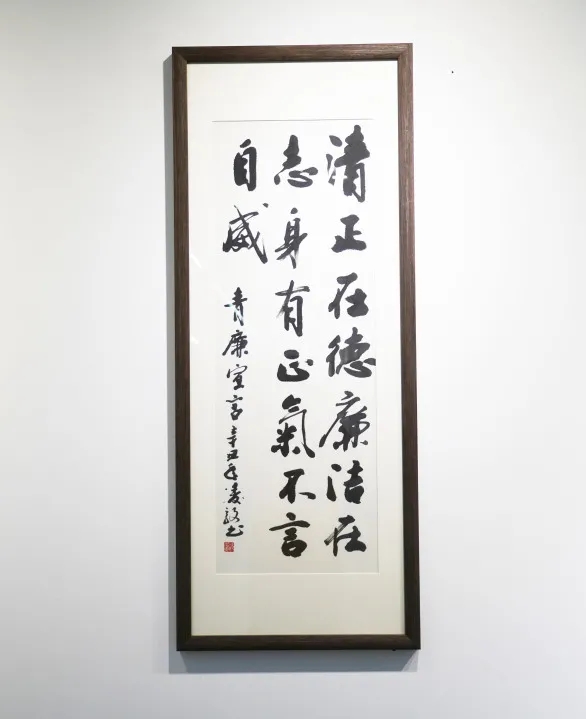 清正在德廉洁在
志身有正氣不言
自威
青廉宣言辛丑年凌毅书